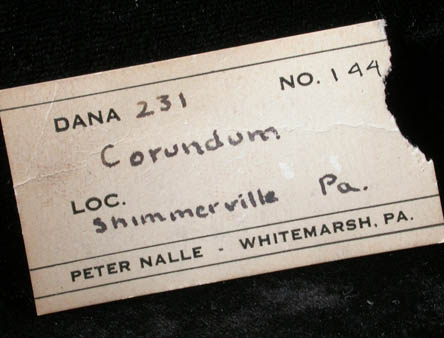 DANA 231 NO. 144
Corundum
LOC.
Shimmerville Pa.
PETER NALLE - WHITEMARSH, PA.